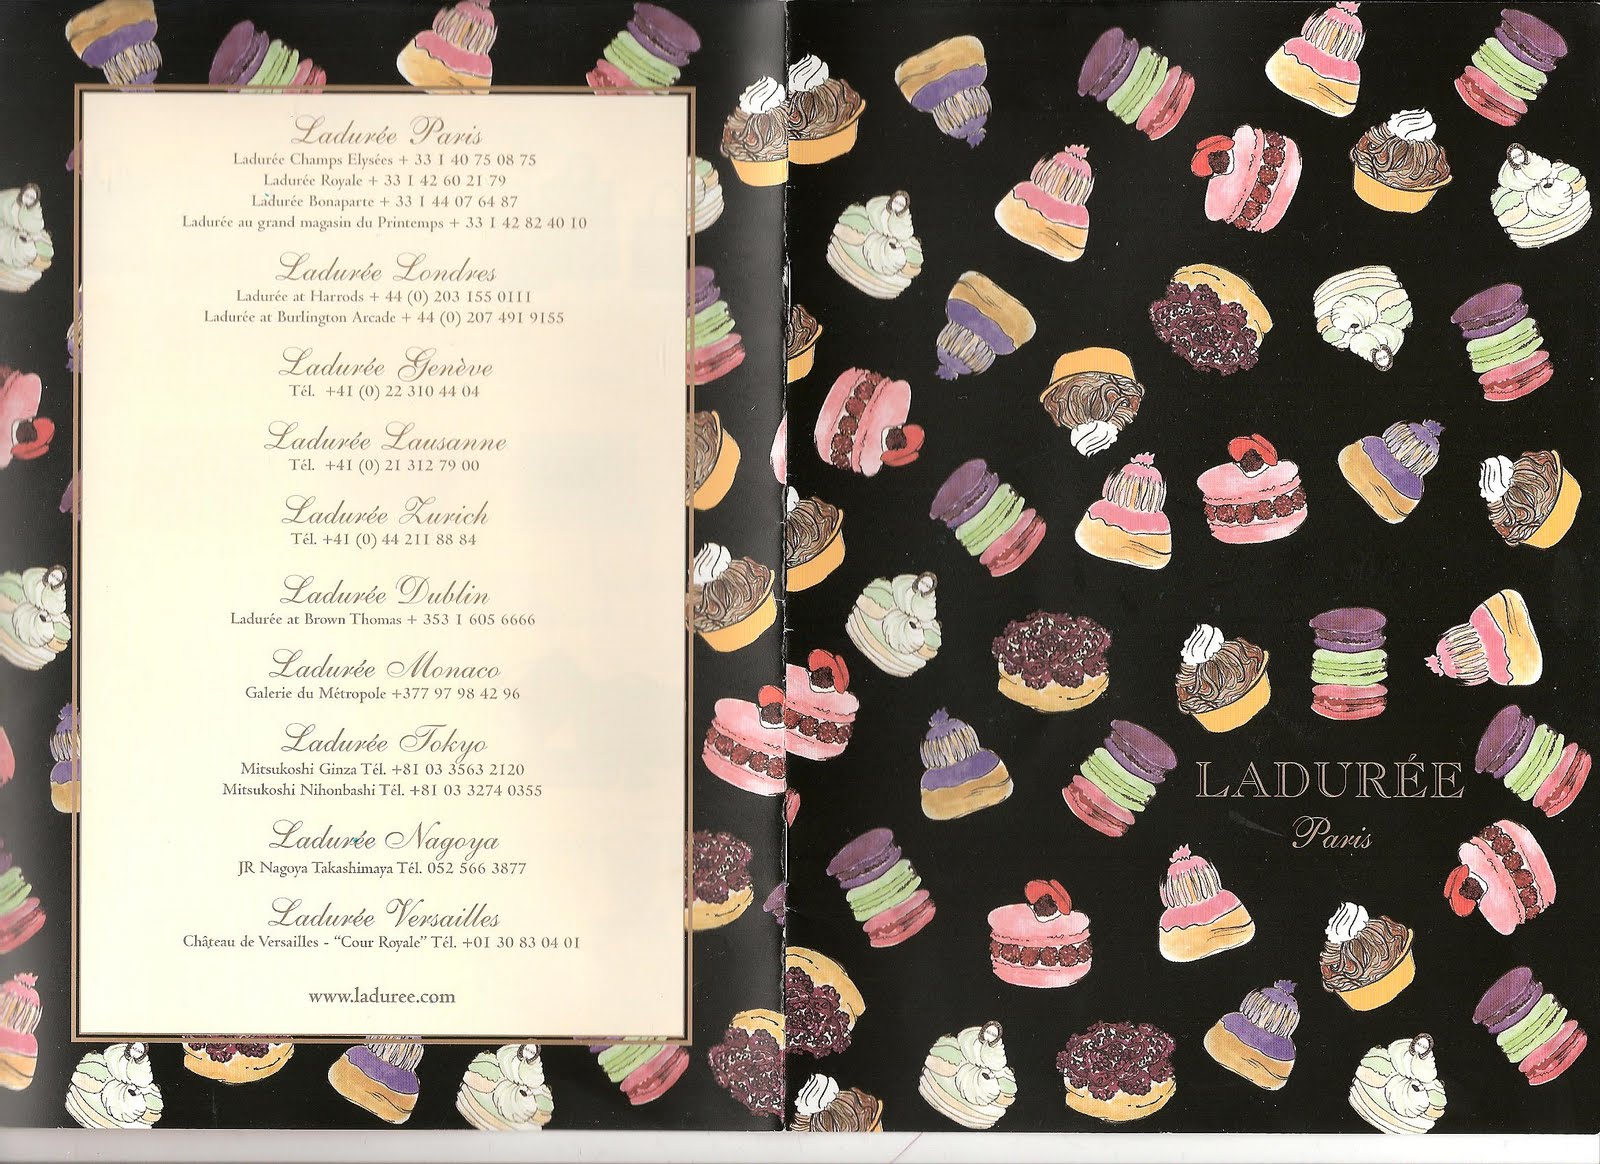 Ladurée Paris
Ladurée Champs Elysées + 33 1 40 75 08 75
Ladurée Royale + 33 1 42 60 21 79
Ladurée Bonaparte + 33 1 44 07 64 87
Ladurée au grand magasin du Printemps + 33 1 42 82 40 10
Ladurée Londres
Ladurée at Harrods + 44 (0) 203 155 0111
Ladurée at Burlington Arcade + 44 (0) 207 491 9155
Ladurée Genève
Tél. +41 (0) 22 310 44 04
Ladurée Lausanne
Tél. +41 (0) 21 312 79 00
Ladurée Zurich
Tél. +41 (0) 44 211 88 84
Ladurée Dublin
Ladurée at Brown Thomas + 353 1 605 6666
Ladurée Monaco
Galerie du Métropole +377 97 98 42 96
Ladurée Tokyo
Mitsukoshi Ginza Tél. +81 03 3563 2120
Mitsukoshi Nihonbashi Tél. +81 03 3274 0355
Ladurée Nagoya
JR Nagoya Takashimaya Tél. 052 566 3877
Ladurée Versailles
Château de Versailles - “Cour Royale” Tél. +01 30 83 04 01
www.laduree.com
LADURÉE
Paris